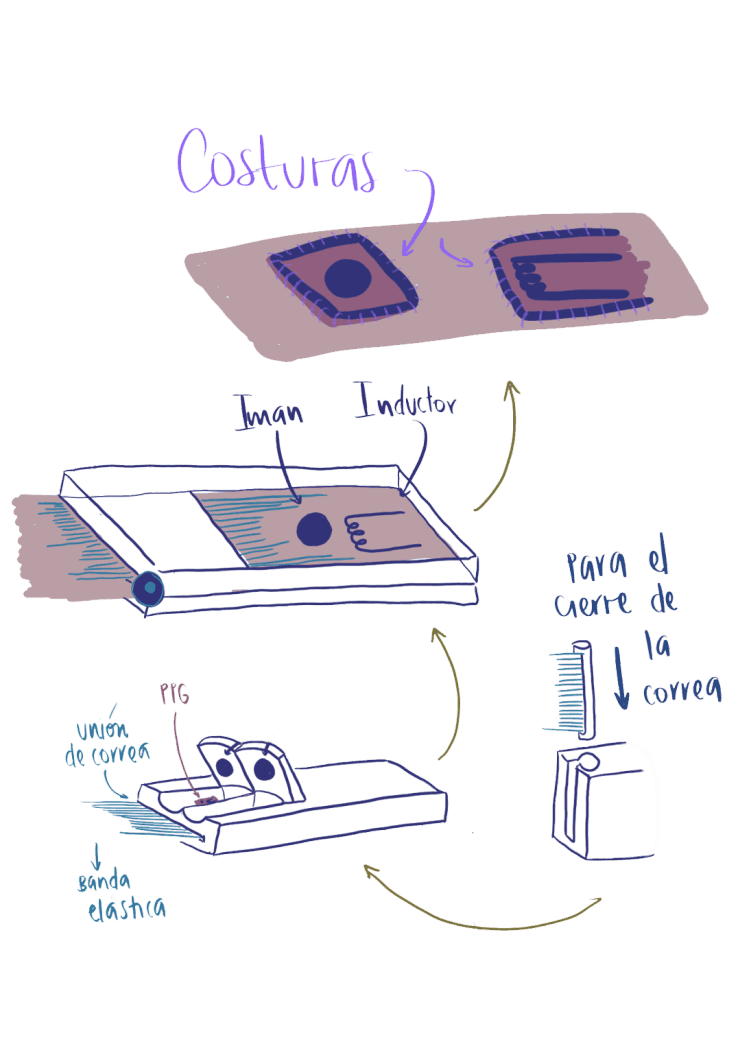 Costuras
Iman
Inductor
para el
cierre de
la
correa
PPG
unión
de correa
Banda
elastica